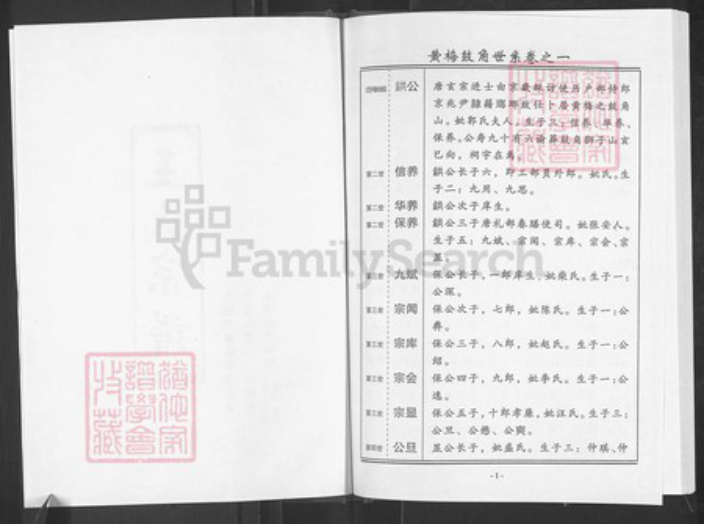 黄梅鼓角世系卷之一
鉷公 唐玄宗进士由京畿采访使历户部侍郎
京兆尹隶籍瑯琊故任卜居黄梅之鼓角
山。妣郭氏夫人。生子三：信养、华养、
保养。公寿九十有六谕葬鼓角狮子山亥
巳向，祠宇在焉。
第二世 信养 鉷公长子六，即工部员外郎。妣氏。生
子二：九周、九思。
第二世 华养 鉷公次子庠生。
第二世 保养 鉷公三子唐礼部春膳使司。妣张安人。
生子五：九斌、宗闻、宗库、宗会、宗
显。
第三世 九斌 保公长子，一郎庠生、妣柴氏。生子一：
公深。
第三世 宗闻 保公次子，七郎，妣陈氏。生子一：公
彝。
第三世 宗库 保公三子，八郎，妣赵氏。生子一：公
绍。
第三世 宗会 保公四子，九郎，妣李氏。生子一：公
逸。
第三世 宗显 保公五子，十郎孝廉，妣汪氏。生子三：
公旦、公懋、公奭。
第四世 公旦 显公长子，妣盛氏。生子三：仲琪、仲
-1-
FamilySearch
犹他家
谱学会
收藏
犹他家
谱学会
收藏